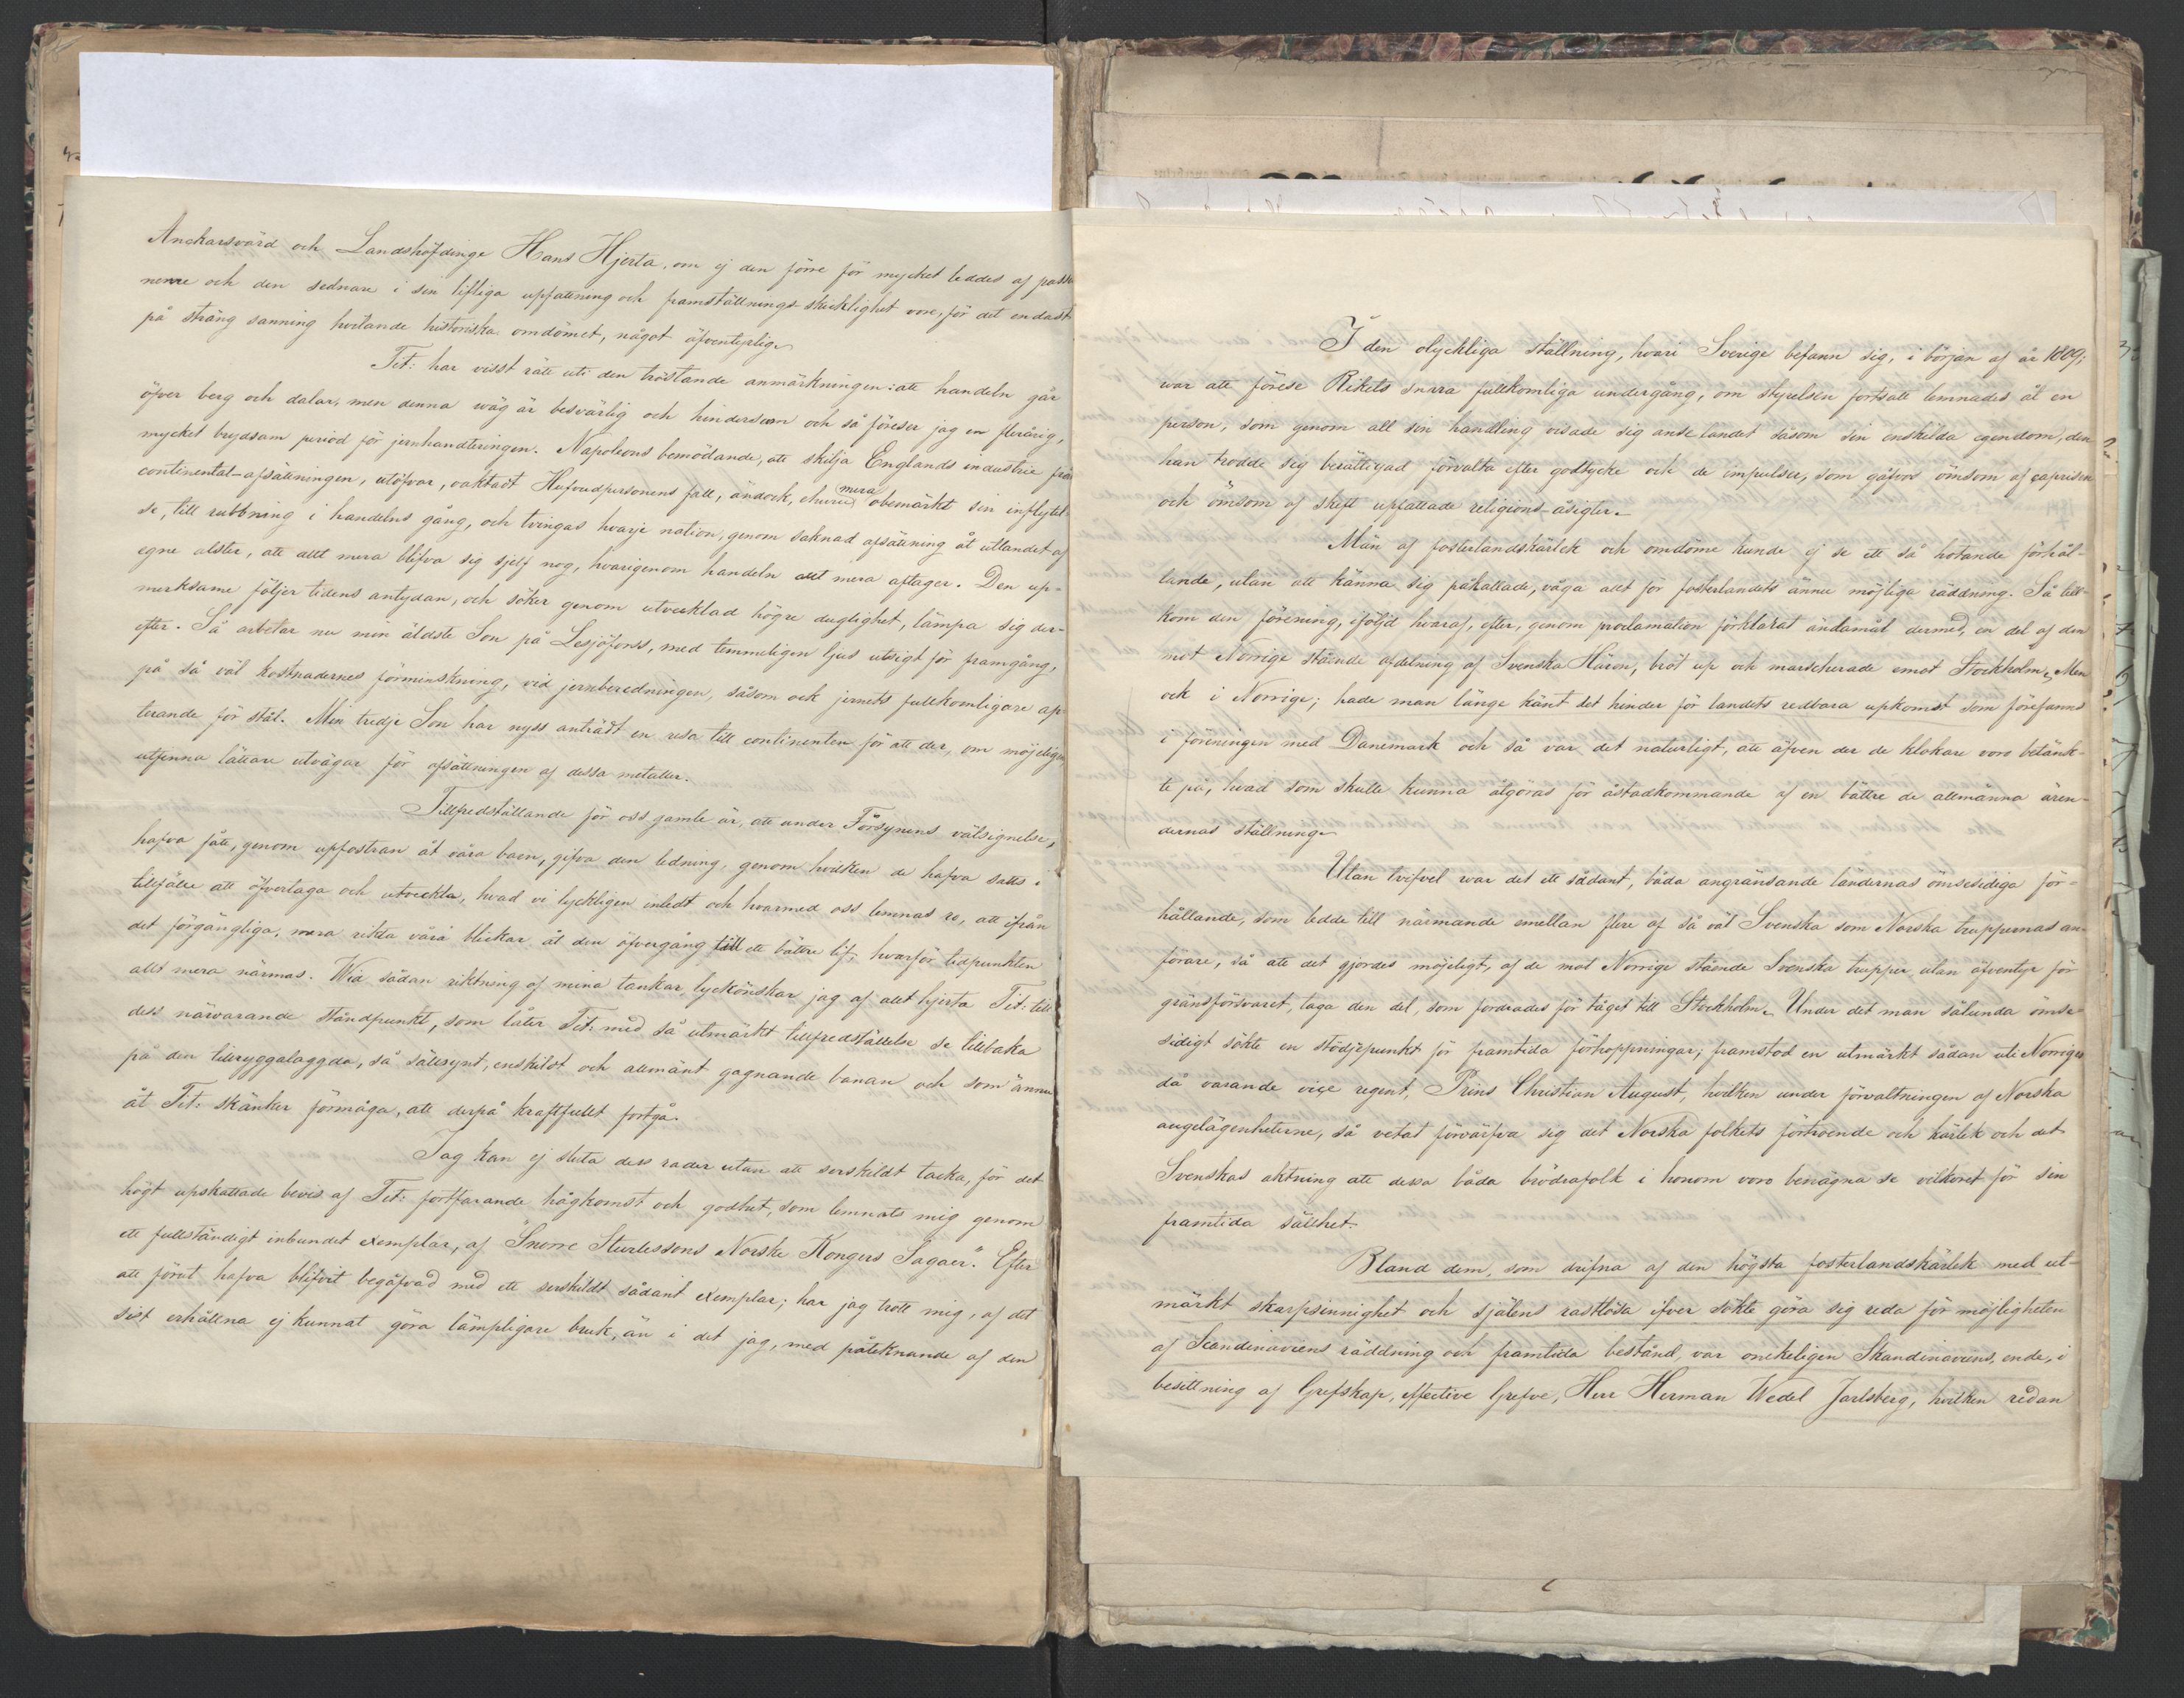 Anckarsvärd och Landshöfdinge Hans Hjerta, om ej den förre för mycket leddes af passio
nerne och den sednare i sin lifliga upfattning och framställnings-skicklighet vore, för det endast
på sträng sanning hvilande historiska omdömet, något äfventyrlige.
Tit: har visst rätt uti den tröstande anmärkningen: att handeln går
öfver berg och dalar, men denna wäg är besvärlig och hindersam och så föreser jag en flerårig,
mycket brydsam period för jernhandteringen. Napoleons bemödande, att skilja Englands industrie från
continental-afsättningen, utöfvar, oaktadt Hufvudpersonens fall, ändock, ehuru mera obemärkt sin inflytel-
se, till rubbning i handelns gång, och tvingas hvarje nation, genom saknad afsättning åt utlandet af
egne alster, att allt mera blifva sig sjelf nog, hvarigenom handeln allt mera aftager. Den up-
merksame följer tidens antydan, och söker genom utvecklad högre duglighet, lämpa sig der-
efter. Så arbetar nu min äldste Son på Lesjöforss, med temmeligen ljus utsigt för framgång,
på så väl kostnadernes förminskning, vid jernberedningen, såsom ock jernets fullkomligare ap-
terande för stål. Min tredje Son har nyss anträdt en resa till continenten för att der, om möjeligen
utfinna lättare utvägar för afsättningen af dessa metaller.
Tillfredställande för oss gamle är, att under Försynens välsignelse,
hafva fått, genom upfostran åt våra barn, gifva den ledning, genom hvilken de hafva satts i
tillfälle att öfvertaga och utveckla, hvad vi lyckligen inledt och hvarmed oss lemnas ro, att ifrån
det förgängliga, mera rikta våra blickar åt den öfvergång till ett bättre lif, hvarför tidpunkten
allt mera närmas. Wid sådan riktning af mina tankar, lyckönskar jag af allt hjerta Tit: till
dess närvarande ståndpunkt, som låter Tit: med så utmärkt tillfredställelse se tillbaka
på den tillryggalaggda, så sällsynt, enskildt och allmänt gagnande banan och som ännu
åt Tit: skänker förmåga, att derpå kraftfullt fortgå.
Jag kan ej sluta dess rader utan att serskildt tacka, för det
högt upskattade bevis af Tit: fortfarande hågkomst och godhet, som lemnats mig genom
ett fullständigt inbundet exemplar, af "Snorre Sturlessons Norske Kongers Sagaer." Efter
att förut hafva blifvit begåfvad med ett serskildt sådant exemplar; har jag trott mig, af det
sist erhållna ej kunnat göra lämpligare bruk, än i det jag, med påteknande af den
I den olyckliga ställning, hvari Sverige befann sig, i början af år 1809;
war att förese Rikets snara fullkomliga undergång, om styrelsen fortsatt lemnades åt en
person, som genom all sin handling visade sig anse landet såsom sin enskilda egendom, den
han trodde sig berättigad förvalta efter godtycke och de impulser, som gåfvos ömsom af caprisen
och ömsom af skeft upfattade religions-åsigter.
Män af fosterlandskärlek och omdöme kunde ej se ett så hotande förhål-
lande, utan att känna sig påkallade, våga allt för fosterlandets ännu möjliga räddning. Så till-
kom den förening, ifölgd hvaraf, efter, genom proclamation förklarat ändamål dermed, en del af den
mot Norrige stående afdelning af Svenska Hären, bröt up och marscherade emot Stockholm. Men
ock i Norrige; hade man länge känt det hinder för landets redbara upkomst som förefanns
i föreningen med Danemark och så var det naturligt, att äfven der de klokare voro betänk-
te på, hvad som skulle kunna åtgöras för åstadkommande af en bättre de allmänna ären-
dernas ställning.
Utan tvifvel war det ett sådant, båda angränsande ländernas ömsesidiga för-
hållande, som ledde till närmande emellan flere af så väl Svenska som Norska truppernas an-
förare, så att det gjordes möjeligt, af de mot Norrige stående Svenska trupper, utan äfventyr för
gränsförsvaret, taga den del, som fordrades för tåget till Stockholm. Under det man sålunda ömse-
sidigt sökte en stödjepunkt för framtida förhoppningar; framstod en utmärkt sådan uti Norriges
då varande vice regent, Prins Christian August, hvilken under förvaltningen af Norska
angelägenheterne, så vetat förvärfva sig det Norska folkets förtroende och kärlek och det
Svenskas aktning att dessa båda brödrafolk i honom voro benägna se vilkoret för sin
framtida sällhet.
Bland dem, som drifna af den högsta fosterlandskärlek med ut-
märkt skarpsinnighet och själens rastlösa ifver sökte göra sig reda för möjligheten
af Scandinaviens räddning och framtida bestånd, var onekeligen Skandinaviens, ende, i
besittning af Grefskap, effective Grefve, Herr Herman Wedel Jarlsberg, hvilken redan